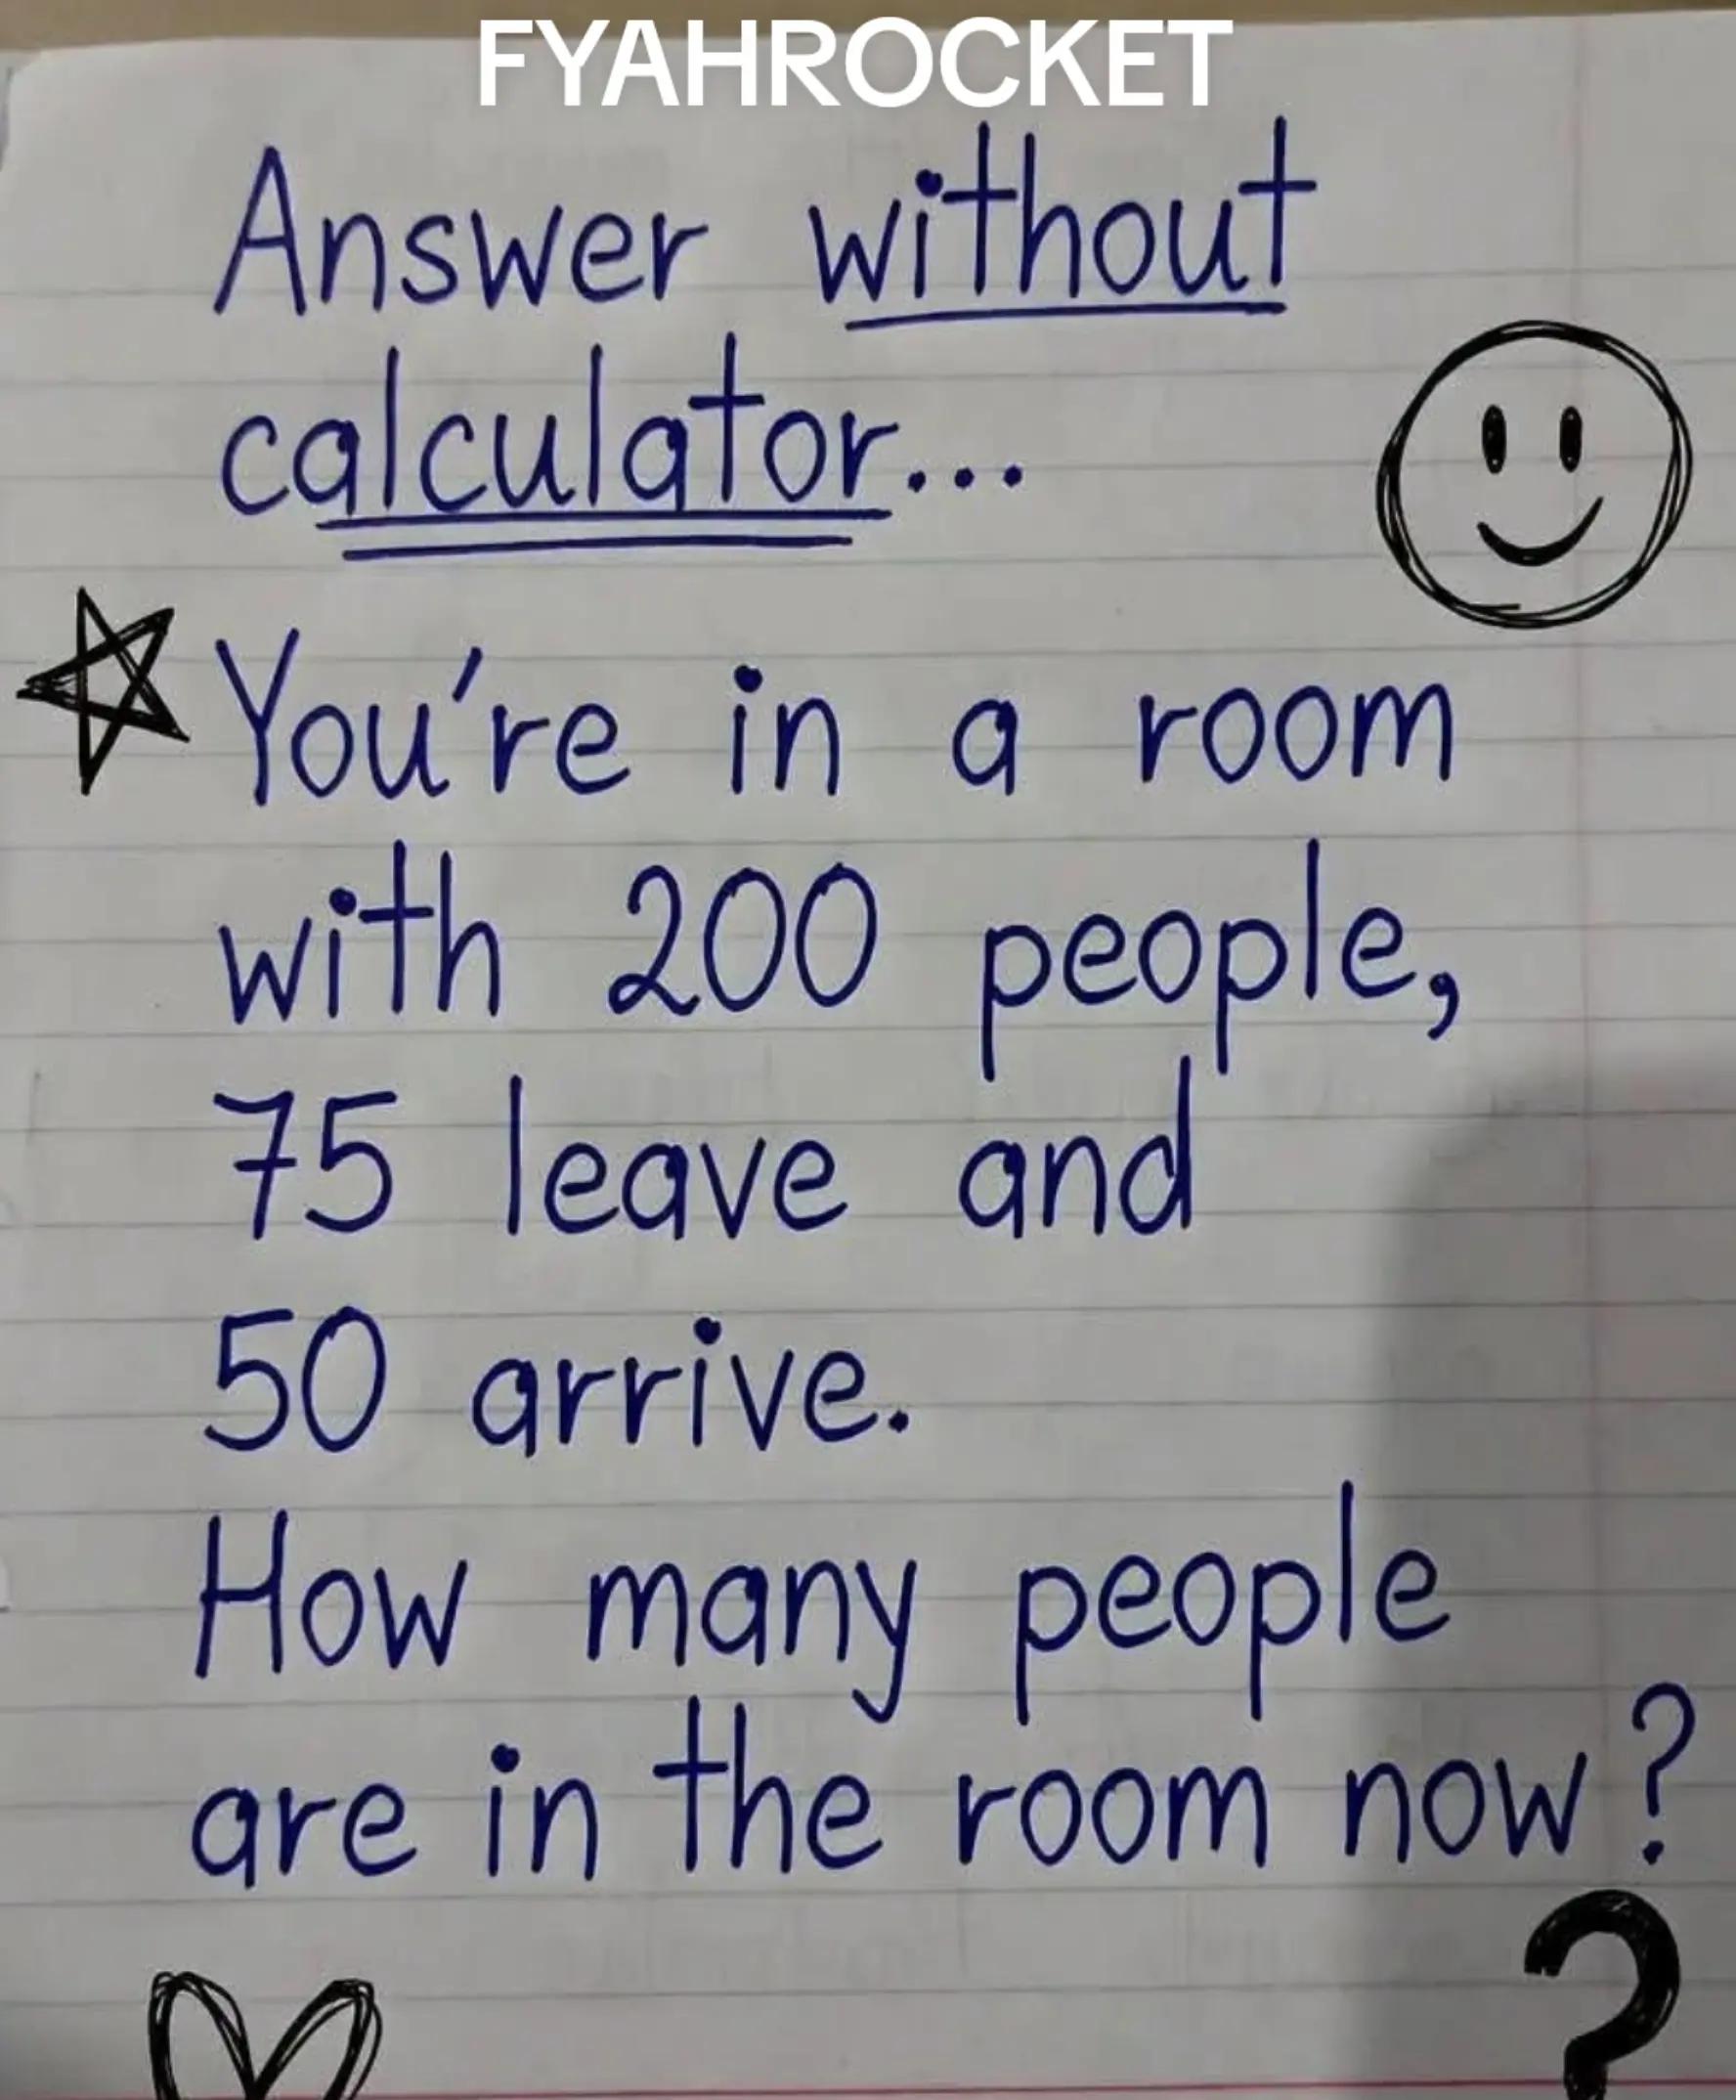 FYAHROCKET
Answer without
calculator...
You're in a room
with 200 people,
75 leave and
50 arrive.
How many people
are in the room now?
?